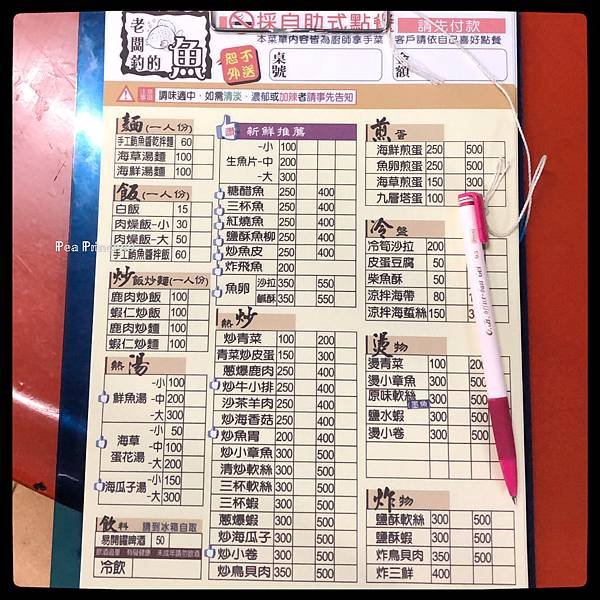 老闆釣的魚
採自助式點餐 請先付款
本菜單內容皆為廚師拿手菜 客戶請依自己喜好點餐
恕不外送
桌號
金額
注意事項 調味適中、如需清淡、濃郁或加辣者請事先告知
麵(一人份)
手工鮪魚醬乾拌麵 60
海草湯麵 100
海鮮湯麵 100
飯(一人份)
白飯 15
肉燥飯-小 30
肉燥飯-大 50
手工鮪魚醬拌飯 60
Pea Prin
炒飯炒麵(一人份)
鹿肉炒飯 100
蝦仁炒飯 100
鹿肉炒麵 100
蝦仁炒麵 100
熱湯
鮮魚湯 -小 100
-中 200
-大 300
海草蛋花湯 -小 50
-中 100
-大 200
海瓜子湯 -小 150
-大 300
飲料 請到冰箱自取
易開罐啤酒 50
飲酒過量 有礙健康 未成年請勿飲酒
冷飲
新鮮推薦
生魚片 -小 100
-中 200
-大 300
糖醋魚 250 400
三杯魚 250 400
紅燒魚 250 400
鹽酥魚柳 250 400
炒魚皮 250 400
炸飛魚 200
魚卵 沙拉 350 550
鹹酥 350 550
熱炒
炒青菜 100 200
青菜炒皮蛋 150 300
蔥爆鹿肉 250 400
炒牛小排 250 400
沙茶羊肉 250 400
炒海香菇 250 400
炒魚胃 200 400
炒小章魚 300 500
清炒軟絲 300 500
三杯軟絲 300 500
三杯蝦 300 500
蔥爆蝦 300 500
炒海瓜子 300 500
炒小卷 300 500
炒鳥貝肉 350 500
煎蛋
海鮮煎蛋 250 500
魚卵煎蛋 250 500
海草煎蛋 150 300
九層塔蛋 100
冷盤
冷筍沙拉 200
皮蛋豆腐 50
柴魚酥 50
涼拌海帶 80
涼拌海蜇絲 150
燙物
燙青菜 100 200
燙小章魚 300
原味軟絲 300
鹽水蝦 300
燙小卷 300 500
炸物
鹽酥軟絲 300 500
鹽酥蝦 300 500
炸鳥貝肉 350 500
炸三鮮 400